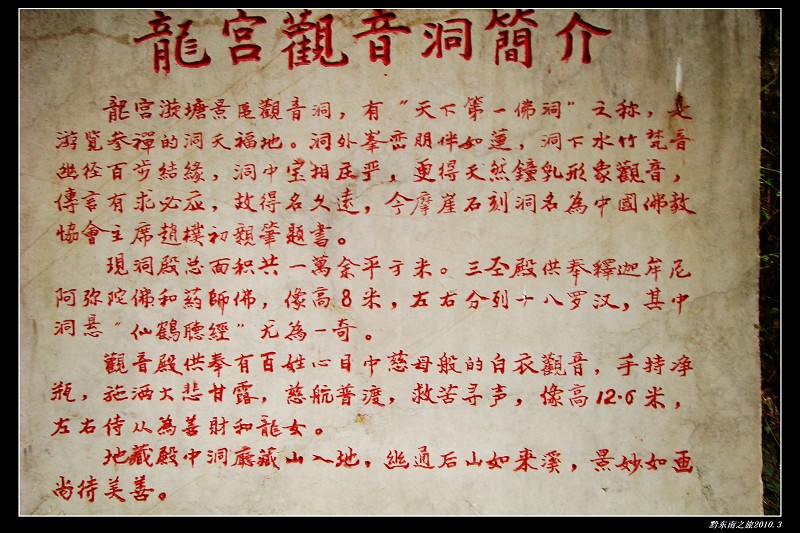 龍宮觀音洞簡介
龍宮漩塘景区觀音洞，有“天下第一佛洞”之称，是
游览參禪的洞天福地。洞外峯峦朋伴如蓮，洞下水竹梵音
幽径百步結緣，洞中宝相庄严，更得天然鐘乳形象觀音，
傳言有求必应，故得名久遠，今摩崖石刻洞名為中國佛教
協會主席趙樸初親筆題書。
現洞殿总面积共一萬余平方米。三圣殿供奉釋迦牟尼
阿弥陀佛和葯師佛，像高8米，左右分列十八罗汉，其中
洞悬“仙鶴聽經”尤為一奇。
觀音殿供奉有百姓心目中慈母般的白衣觀音，手持净
瓶，施洒大悲甘露，慈航普渡，救苦寻声，像高12.6米，
左右侍从為善財和龍女。
地藏殿中洞廳藏山入地，幽通后山如来溪，景妙如画
尚待美善。
黔东南之旅2010.3